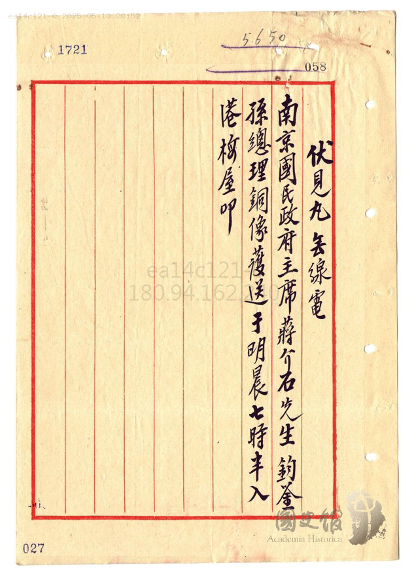 1721
5650
058
伏見丸無線電
南京國民政府主席蔣介石先生鈞鑒
孫總理銅像護送于明晨七時半入
港梅屋叩
027
ea14c121
180.94.162.
國史館
Academia Historica